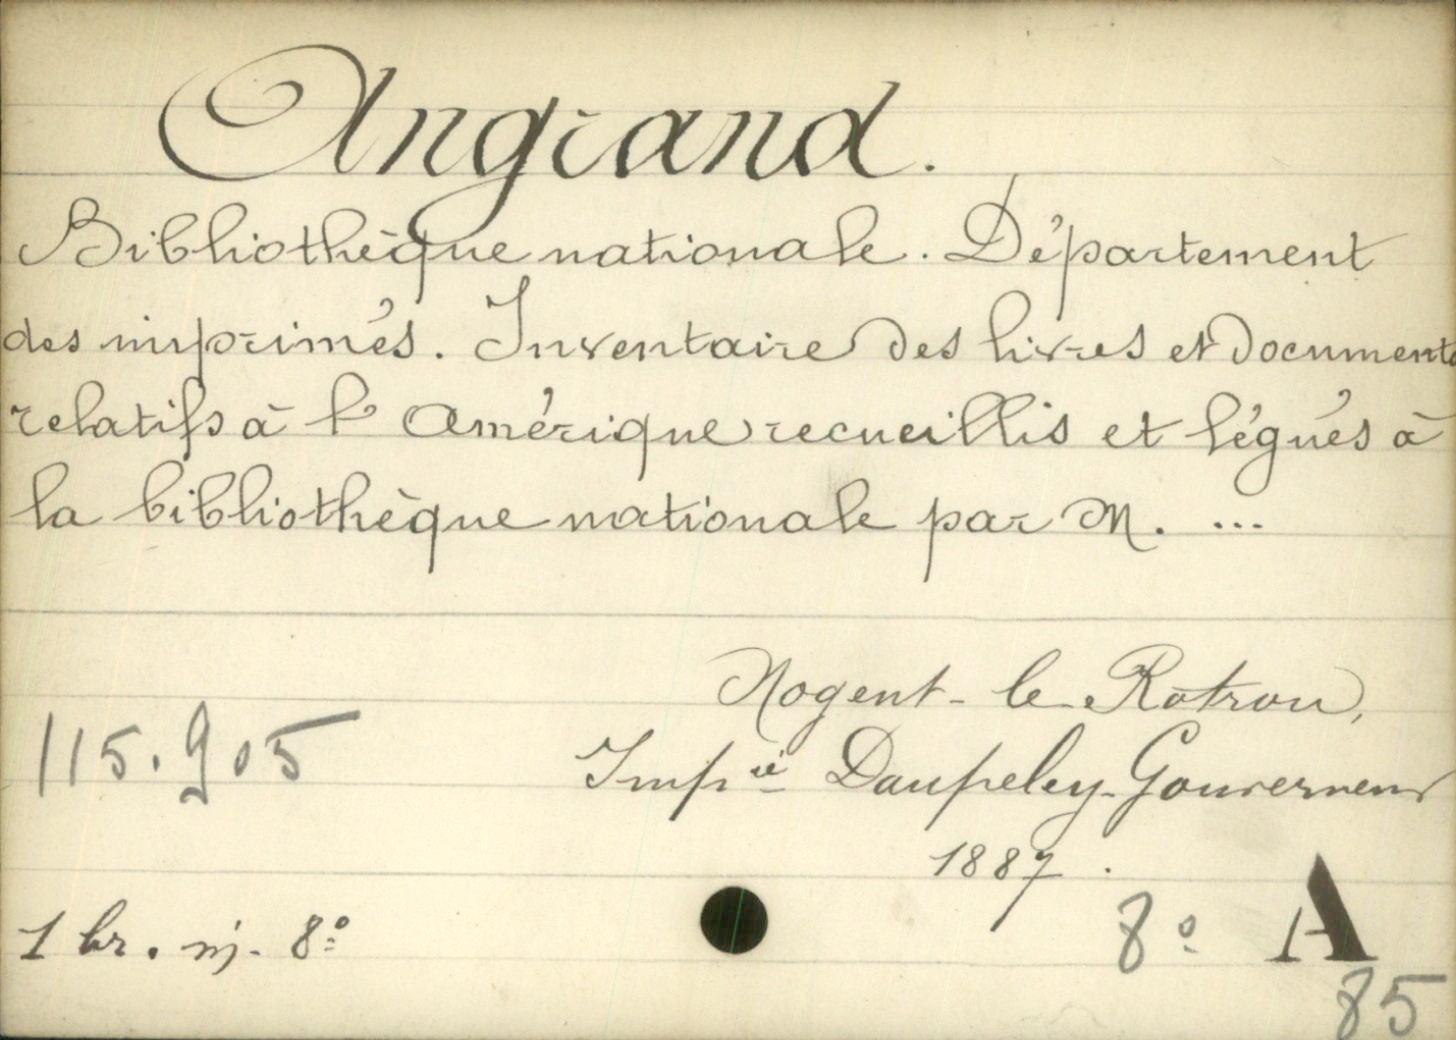 Angrand.
Bibliothèque nationale. Département
des imprimés. Inventaire des livres et documents
relatifs à l'Amérique recueillis et légués à
la bibliothèque nationale par M. ...
Nogent-le-Rotrou,
115.905
Impie Daupeley-Gouverneur
1887.
1 br. in-8º
8º A
85